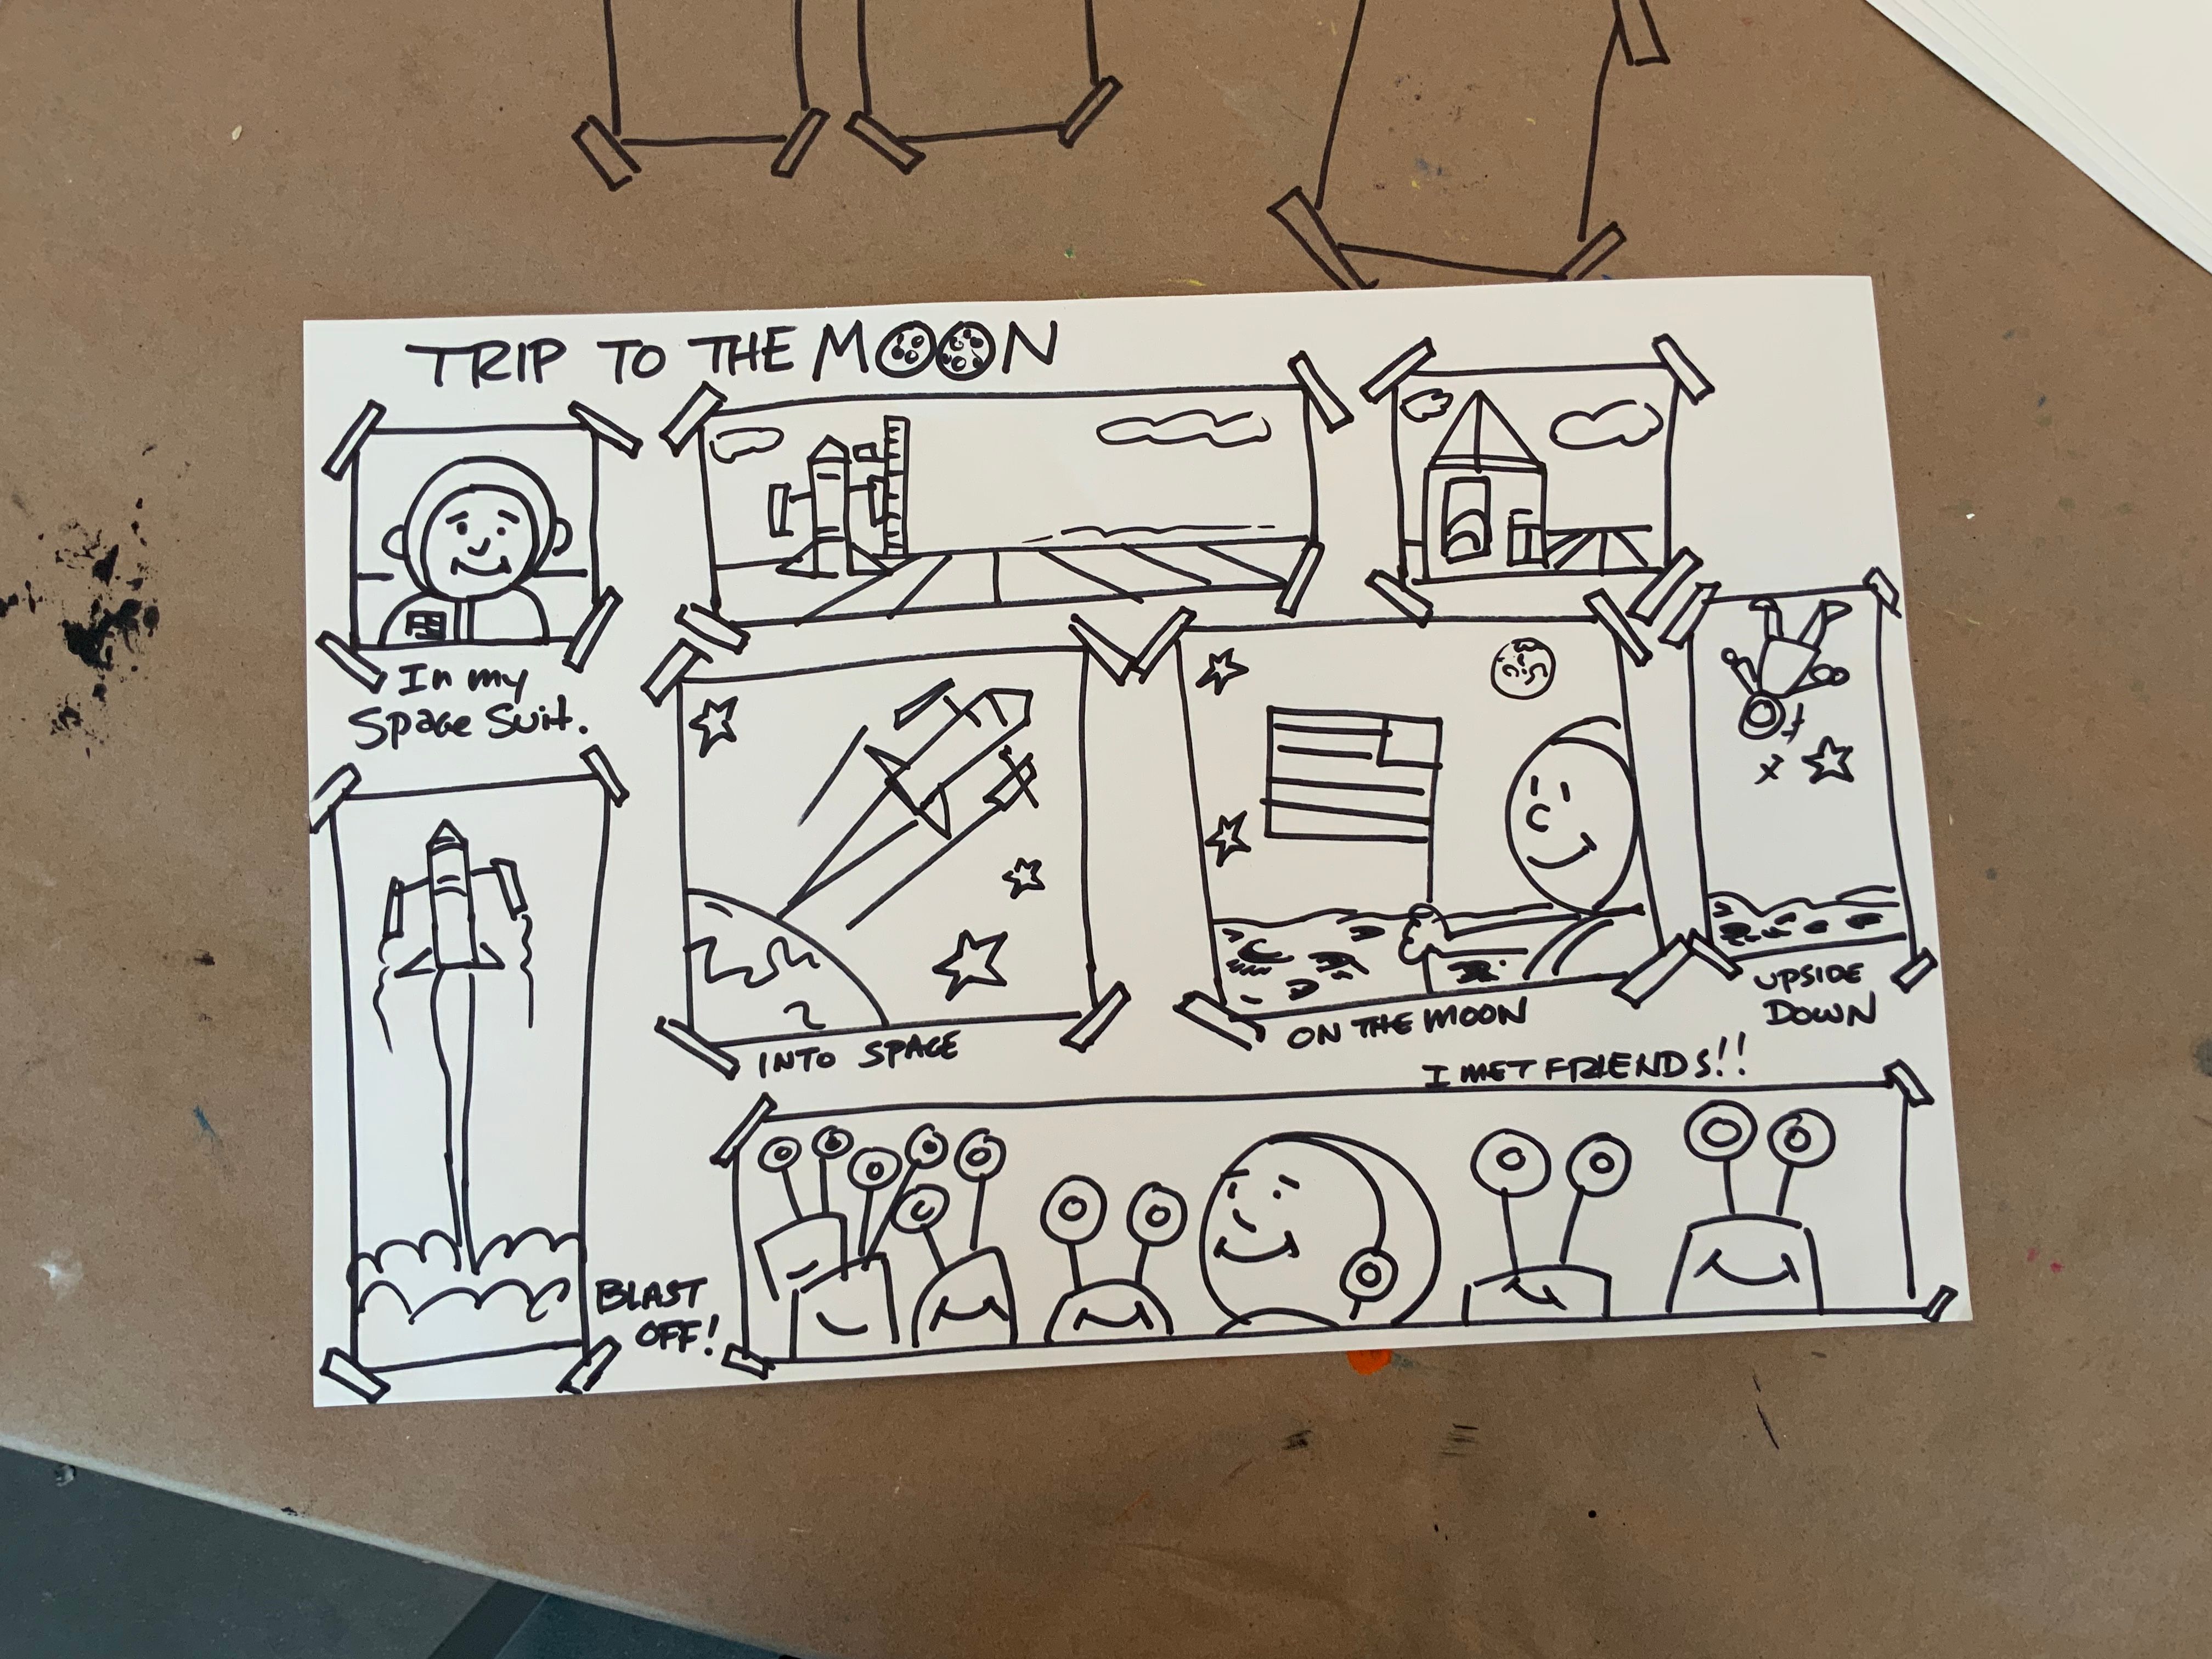 TRIP TO THE MOON
In my
Space Suit.
INTO SPACE
ON THE MOON
UPSIDE
DOWN
BLAST
OFF!
I MET FRIENDS!!